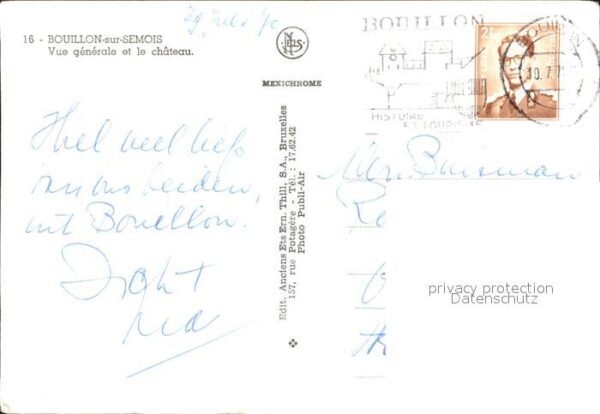 29 Juli '70
16 - BOUILLON-sur-SEMOIS
Vue générale et le château.
NELS
MEXICHROME
BOUILLON
HISTOIRE
ET TOURISME
2F
Heel veel liefs
van ons beiden,
uit Bouillon.
Edit. Anciens Ets Ern. Thill, S.A., Bruxelles
157, rue Potagère - Tél.: 17.62.42
Photo Publi-Air
Mevr. Buisman
privacy protection
Datenschutz